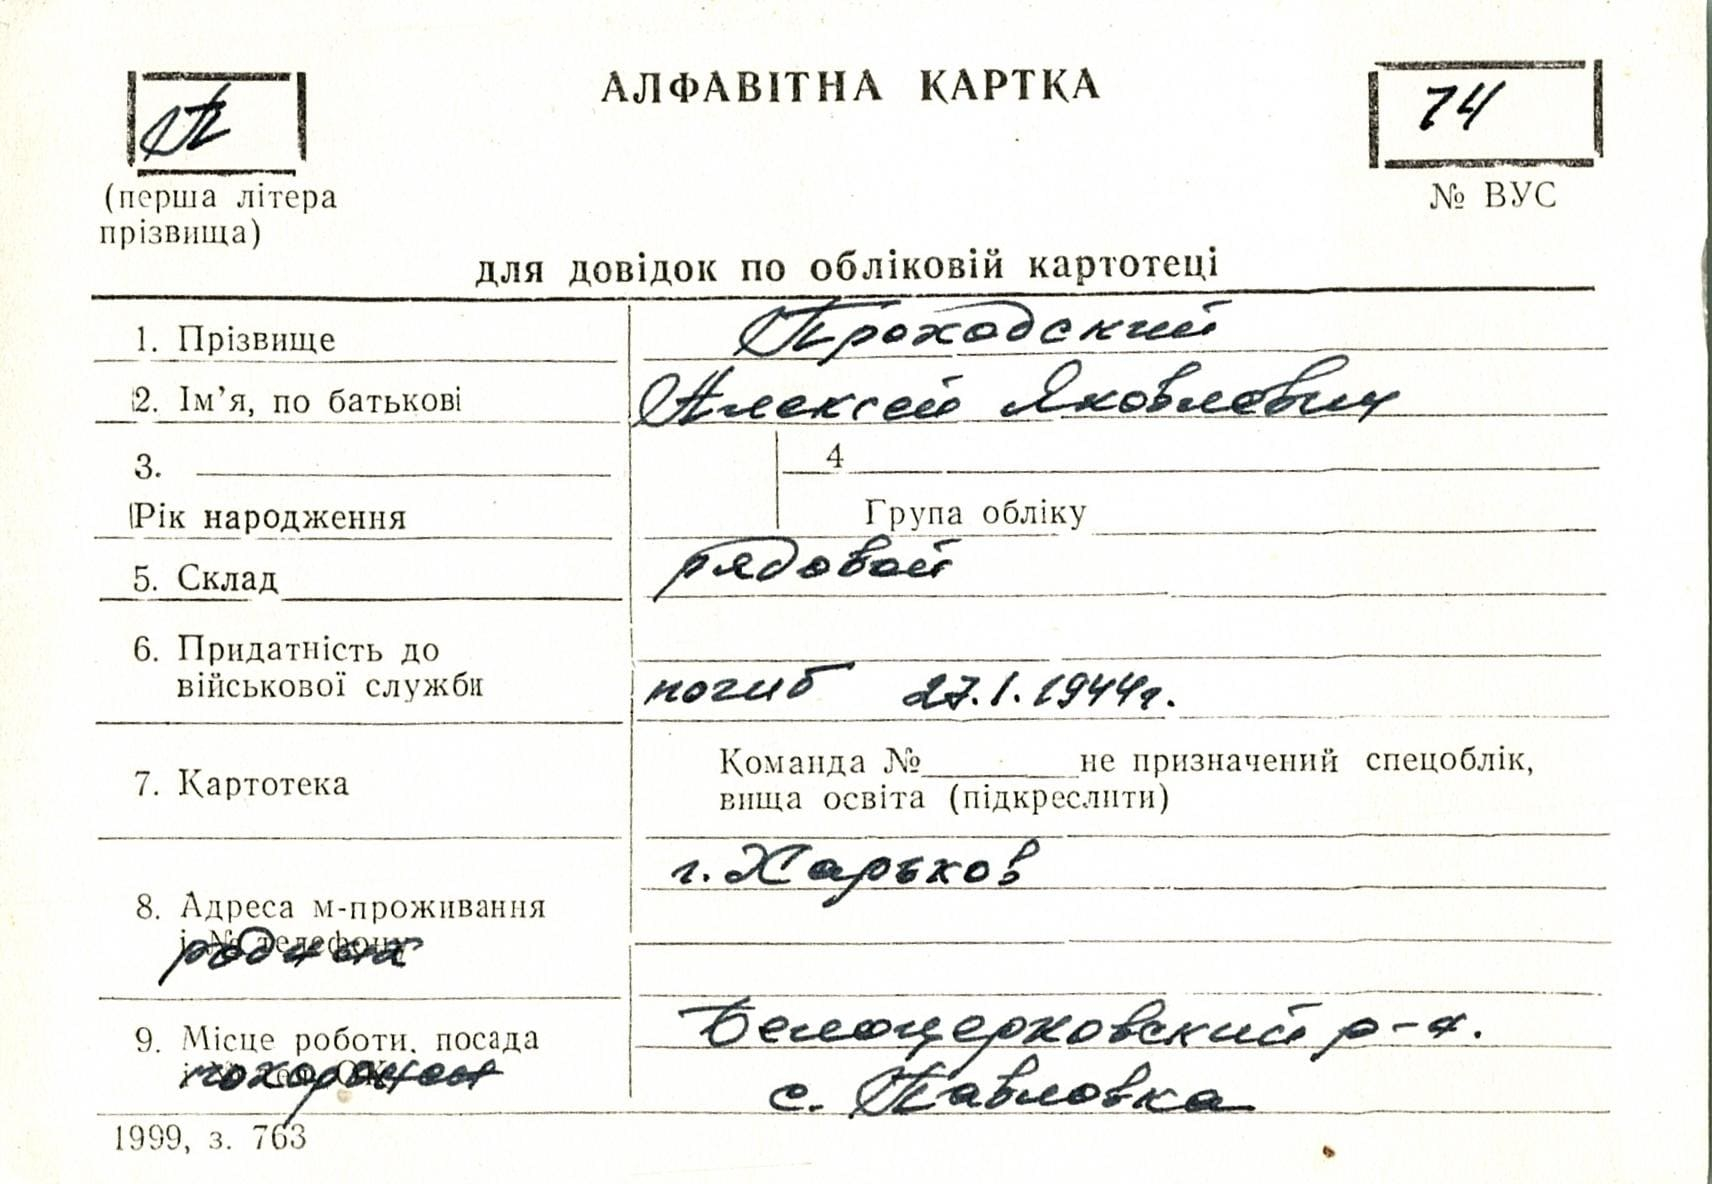 П
АЛФАВІТНА КАРТКА
74
(перша літера
прізвища)
№ ВУС
для довідок по обліковій картотеці
1. Прізвище Проходский
2. Ім’я, по батькові Алексей Яковлевич
3. 4
Рік народження Група обліку
5. Склад рядовой
6. Придатність до
військової служби погиб 27.1.1944г.
7. Картотека
Команда № не призначений спецоблік,
вища освіта (підкреслити)
г. Харьков
8. Адреса м-проживання
і № телефону
родных
9. Місце роботи, посада Белоцерковский р-н.
похоронен
с. Павловка
1999, з. 763